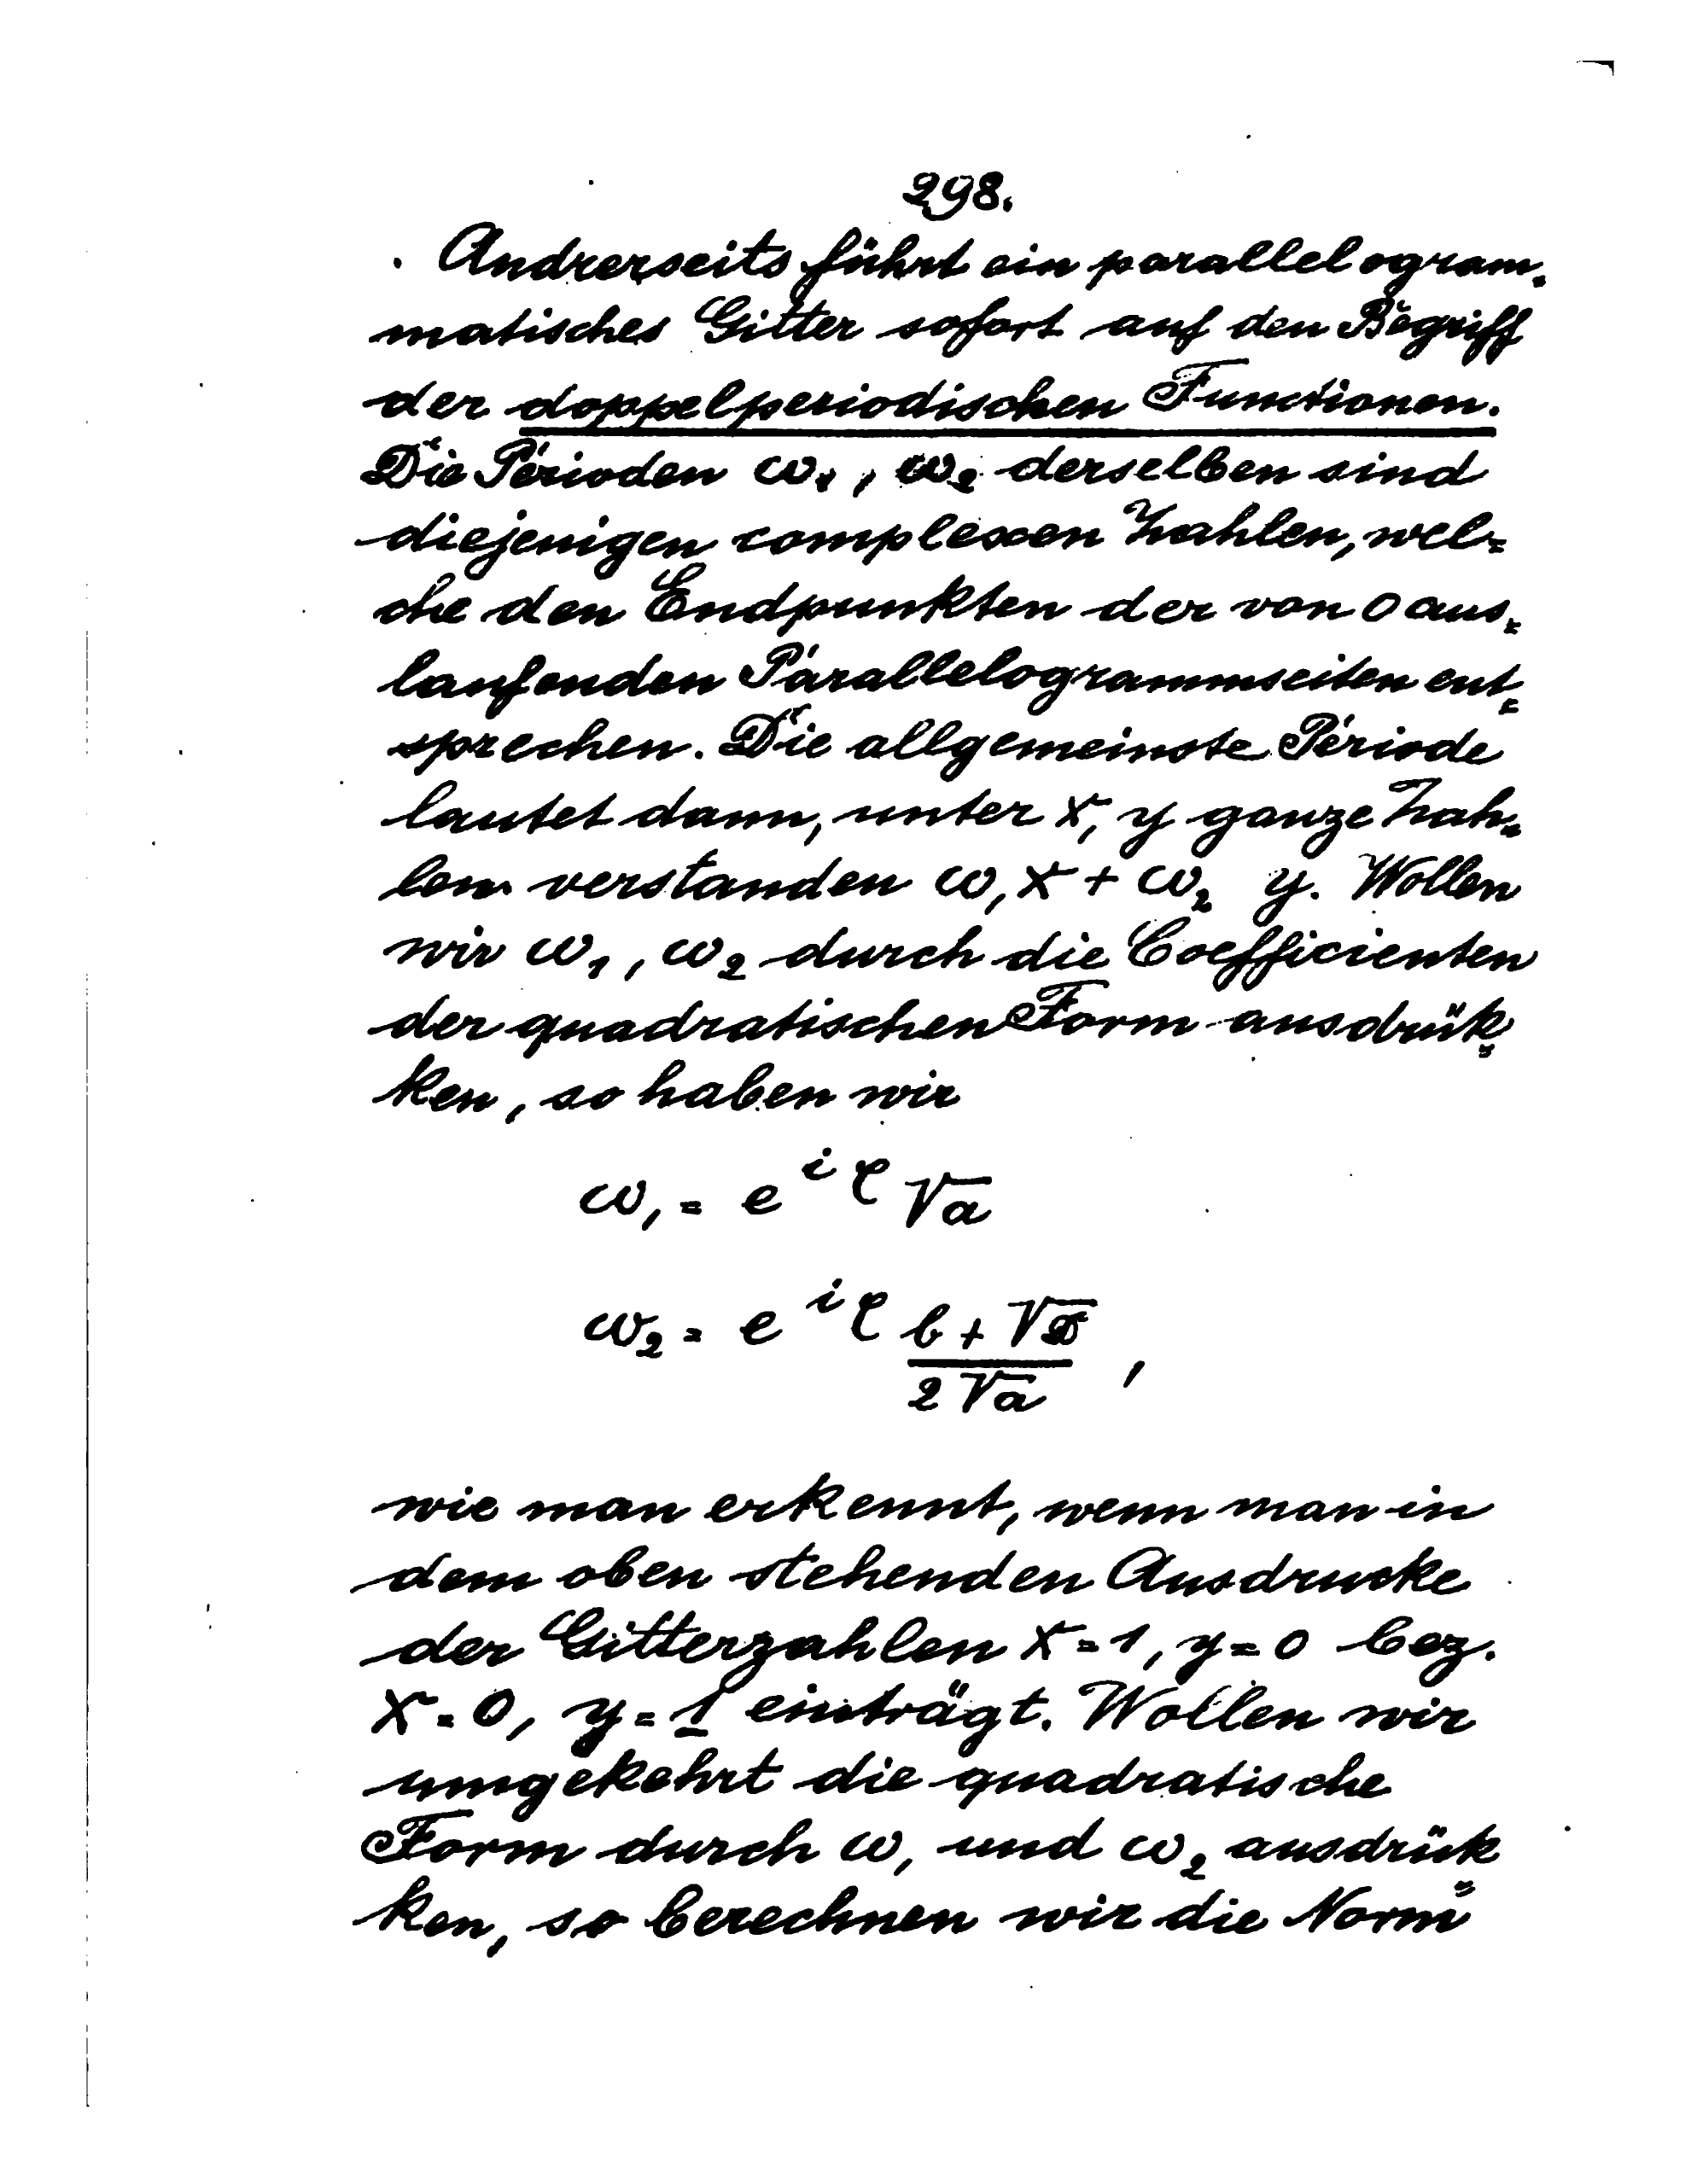 298.
Andrerseits führt ein parallelogram=
matisches Gitter sofort auf den Begriff
der doppelperiodischen Functionen.
Die Perioden ω₁, ω₂ derselben sind
diejenigen complexen Zahlen, wel=
che den Endpunkten der von 0 aus=
laufenden Parallelogrammseiten ent=
sprechen. Die allgemeinste Periode
lautet dann, unter x, y ganze Zah=
len verstanden ω₁x + ω₂ y. Wollen
wir ω₁, ω₂ durch die Coefficienten
der quadratischen Form ausdrük=
ken, so haben wir
ω₁ = e^{iτ} √a
ω₂ = e^{iτ} (b + √D) / (2√a),
wie man erkennt, wenn man in
dem oben stehenden Ausdrucke
der Gitterzahlen x = 1, y = 0 bez.
x = 0, y = 1 einträgt. Wollen wir
umgekehrt die quadratische
Form durch ω₁ und ω₂ ausdrük=
ken, so berechnen wir die Norm